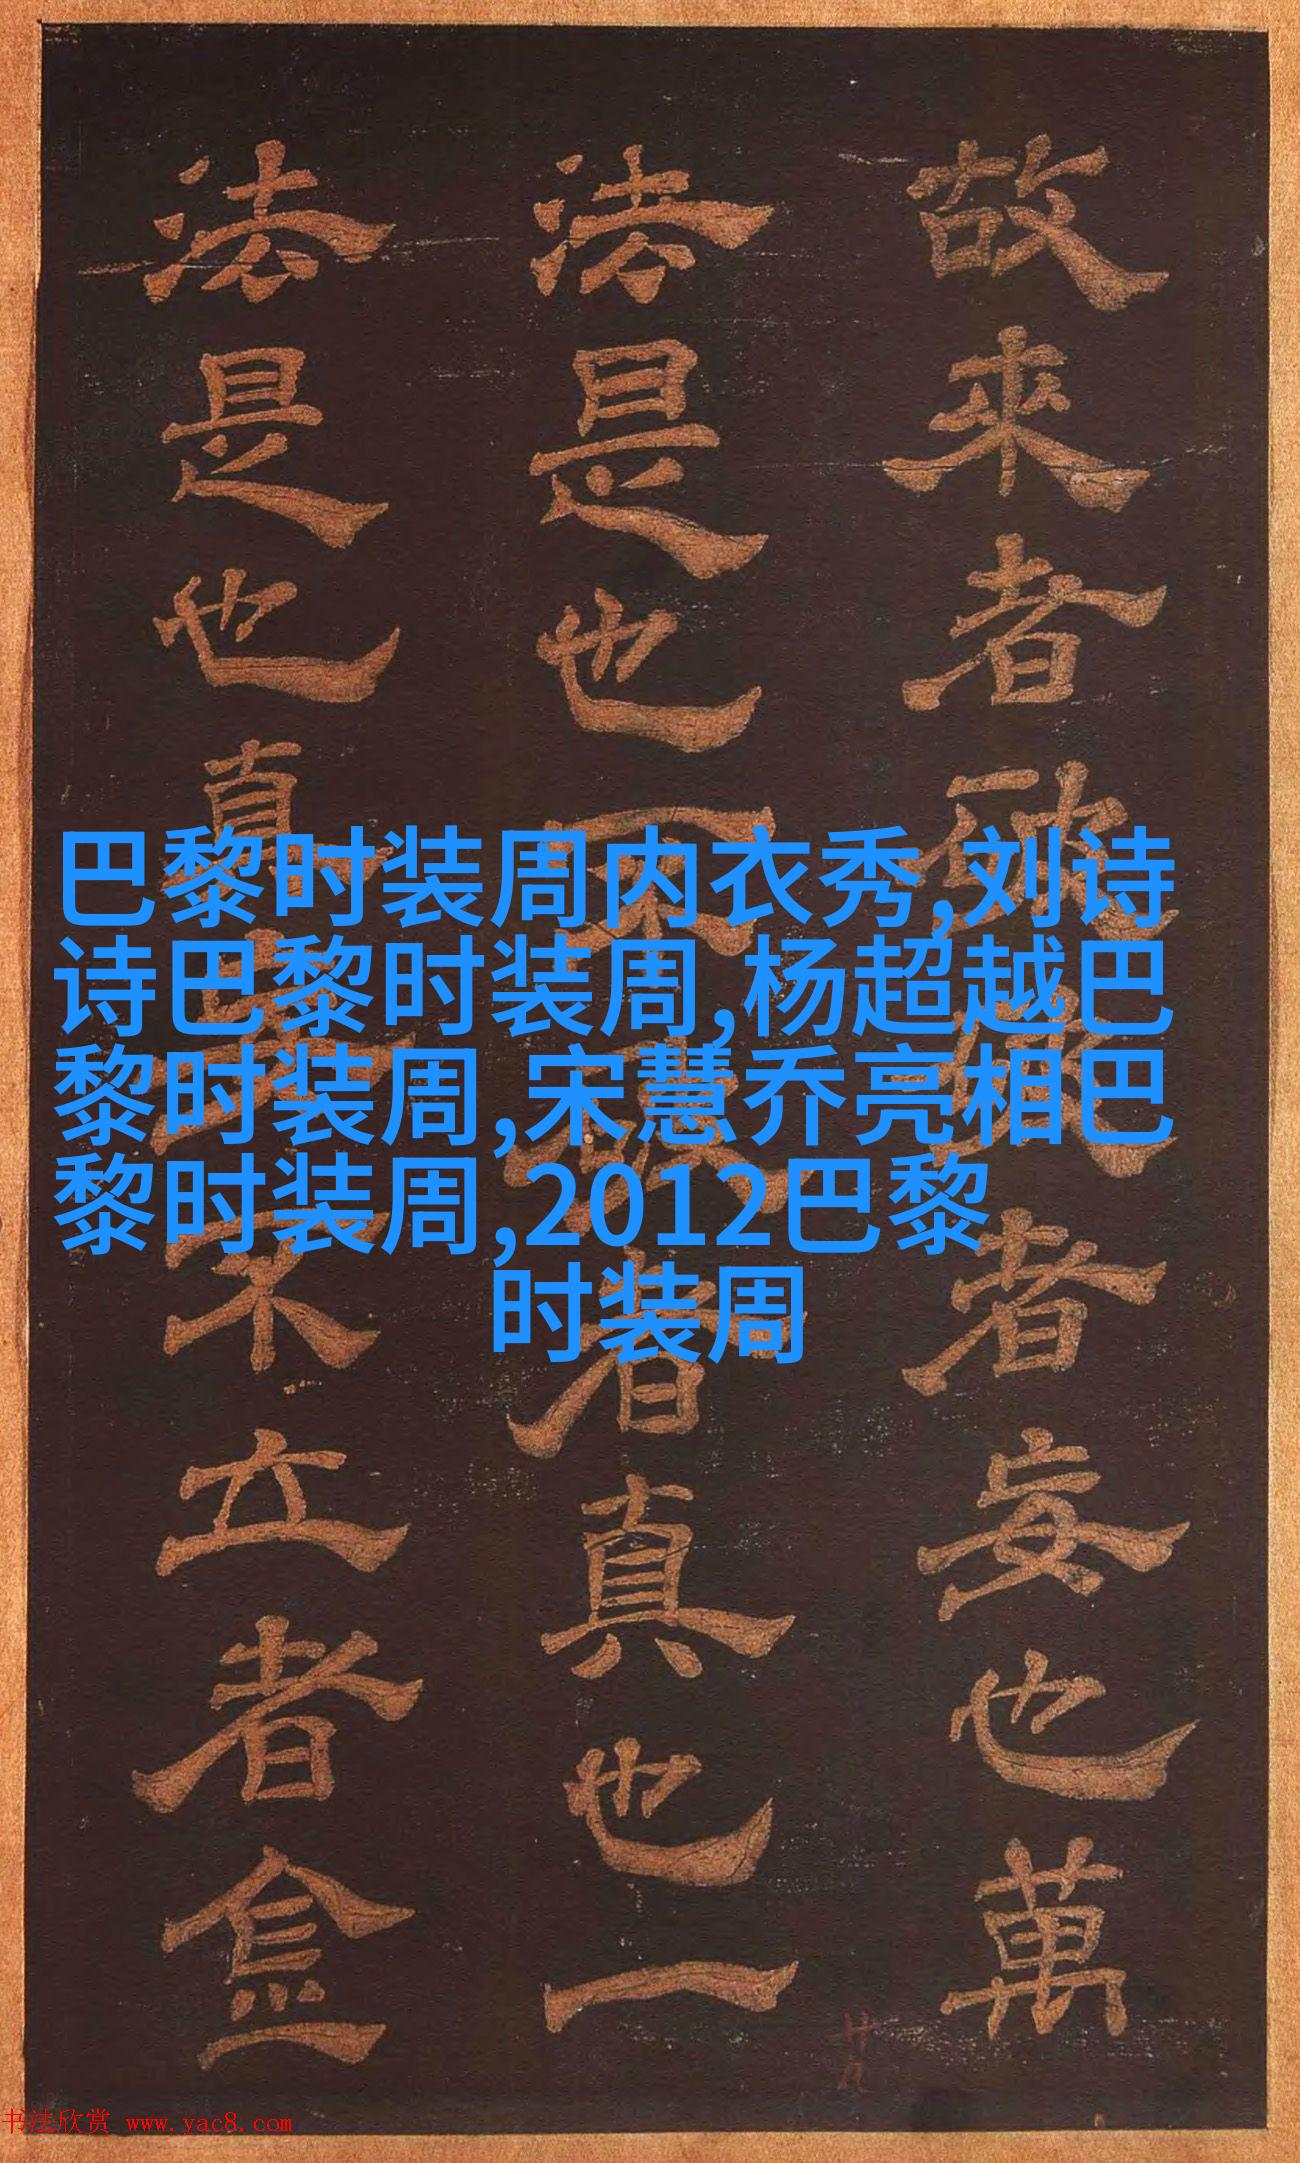 故來者者妄也萬
法是也不者真也一
法是也真妄不立者
巴黎时装周内衣秀,刘诗
诗巴黎时装周,杨超越巴
黎时装周,宋慧乔亮相巴
黎时装周,2012巴黎
时装周
廿九
书法欣赏 www.yac8.com